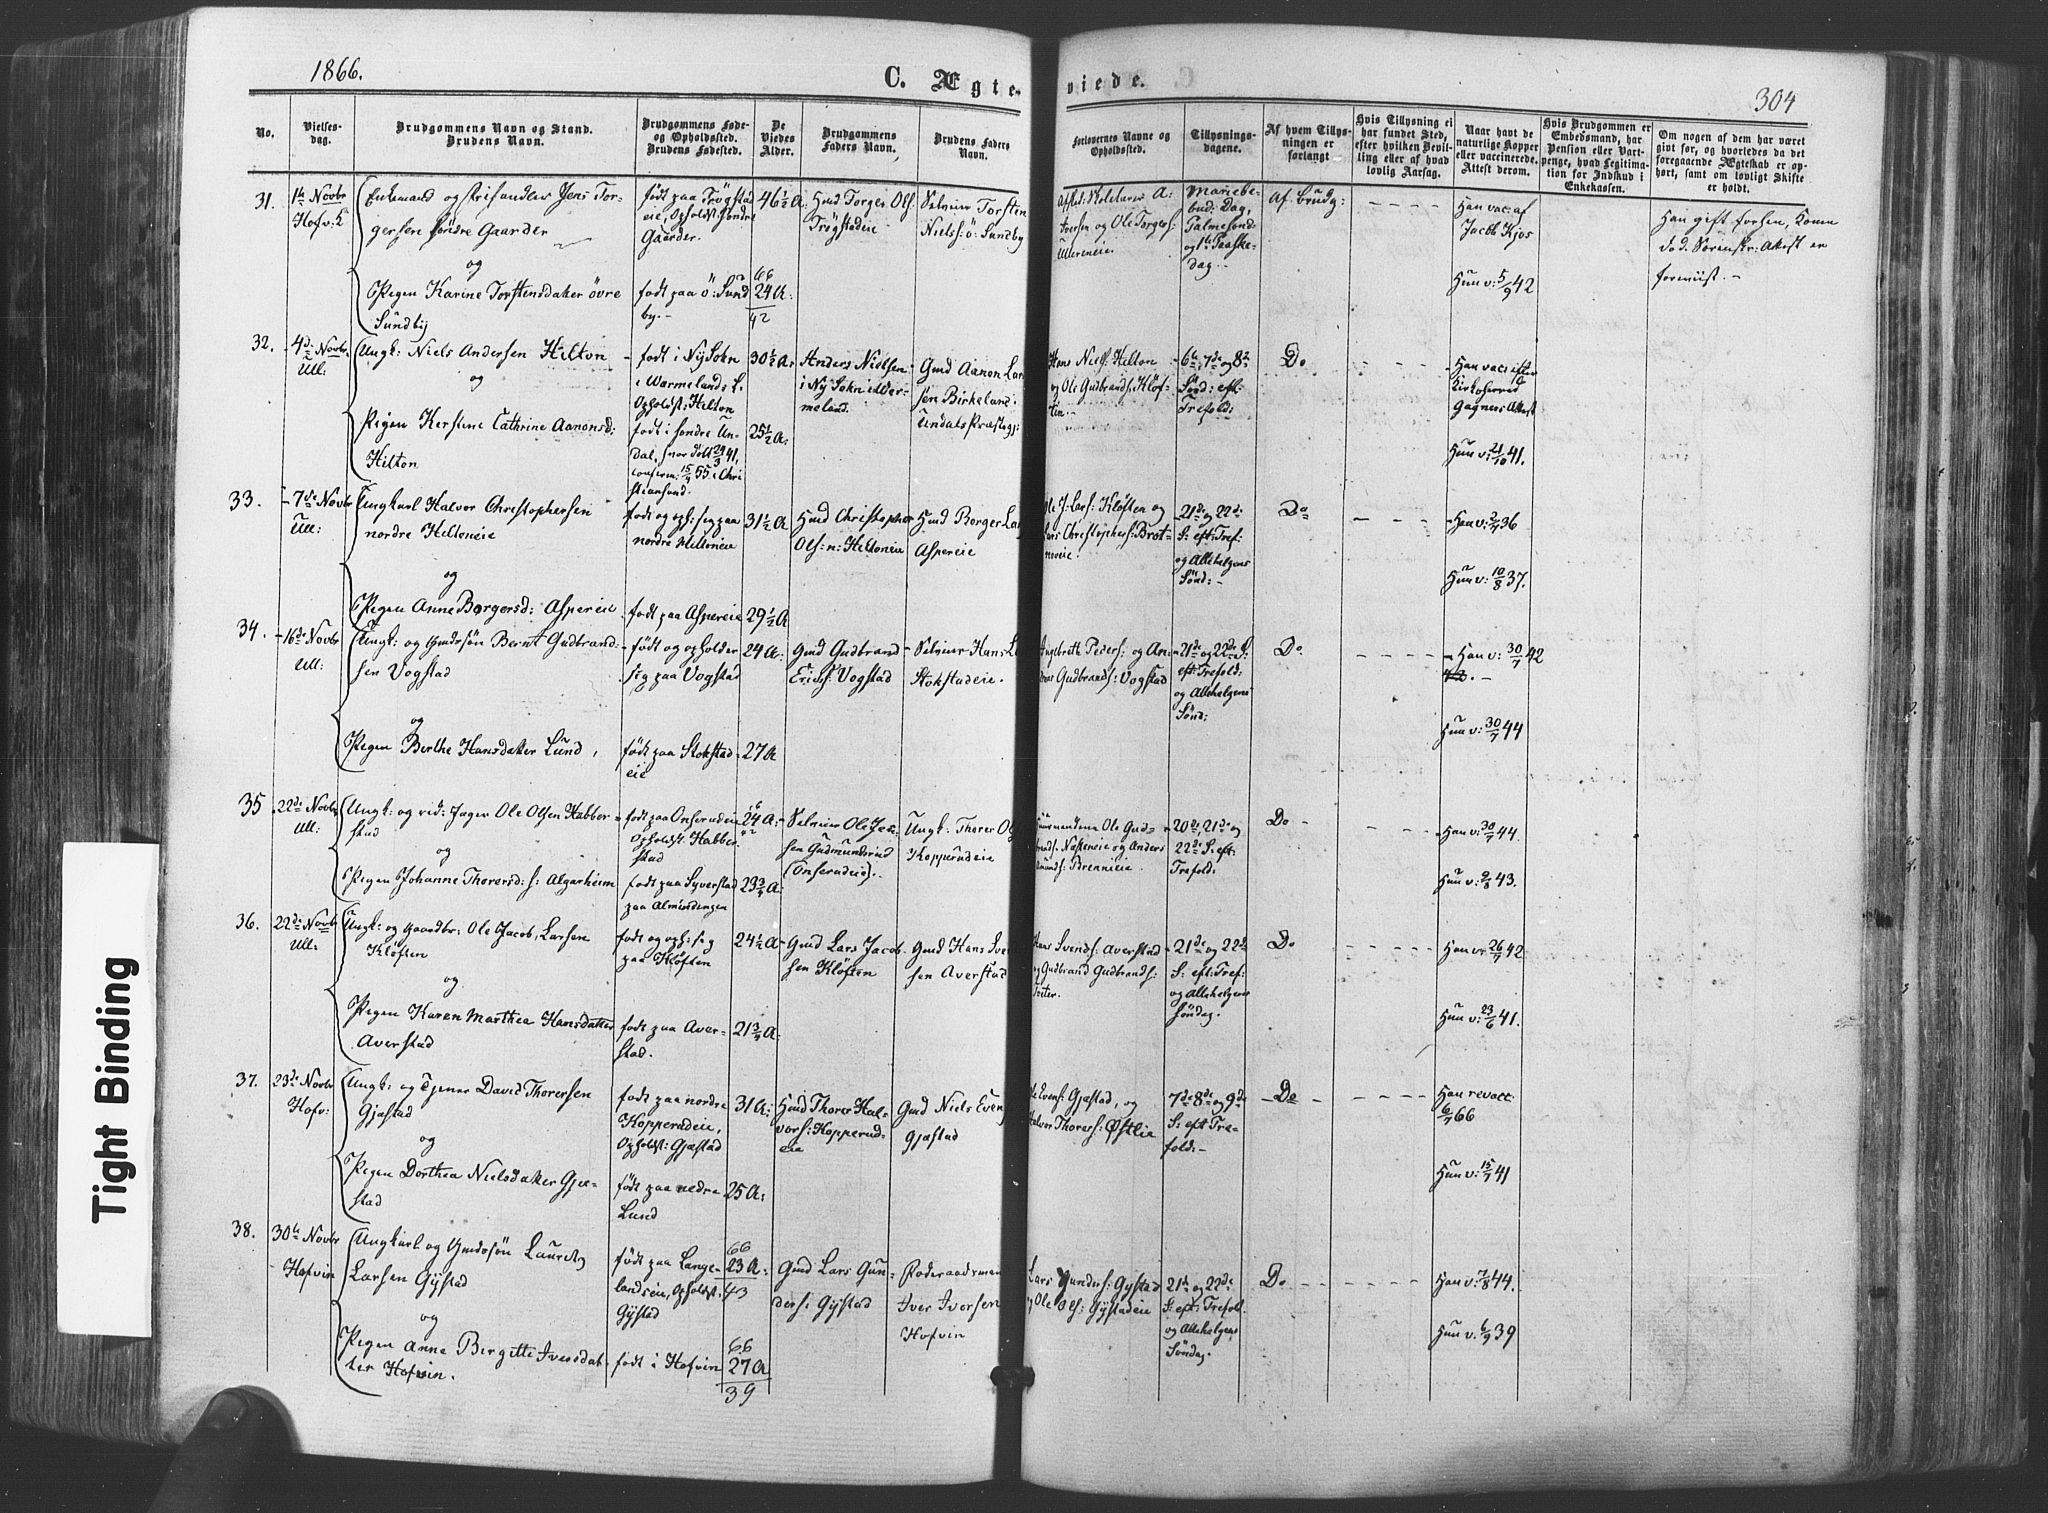 1866.
C. Ægte-
viede.
304
No.
Vielses-
dag.
Brudgommens Navn og Stand.
Brudens Navn.
Brudgommens Føde-
og Opholdssted.
Brudens Fødested.
De
Viedes
Alder.
Brudgommens
Faders Navn.
Brudens Faders
Navn.
Forlovernes Navne og
Opholdssted.
Tillysnings-
dagene.
Af hvem Tillys-
ningen er
forlangt
Hvis Tillysning ei
har fundet Sted,
efter hvilken Bevil-
ling eller af hvad
lovlig Aarsag.
Naar havt de
naturlige Kopper
eller vaccinerede.
Attest derom.
Hvis Brudgommen er
Embedsmand, har
Pension eller Vart-
penge, hvad Legitima-
tion for Indskud i
Enkekassen.
Om nogen af dem har været
gift før, og hvorledes da det
foregaaende Ægteskab er op-
hørt, samt om lovligt Skifte
er holdt.
31.
1te Novbr
Hofv: K
Enkemand og Jens Tor-
gersen søndre Gaarder
og
Pigen Karine Torstensdatter övre
Sundby
født paa Trögstad
eie, Opholdst: søndre
Gaarder.
født paa ö: Sund
by.-
46½ A.
66
24 A:
42
Hmd Torger Ols:
Trögstadeie
Selveier Torsten
Niels: ö: Sundby
Iversen og Ole Torgers:
Ullereneie
Mariebe-
bud: Dag,
Palmesönd:
og 1te Paaske-
dag.-
Af Brudg:
Han vac: af
Jacob Kjos
Hun v: 5/9 42
Han gift forhen, Konen
död. Sorenskr: Attest er
forevist.-
32.
4de Novbr
Ull:
Ungk: Niels Andersen Hilton
og
Pigen Kerstine Cathrine Aanonsd:
Hilton
født i Ny Sokn
i Wermelands L.
Opholdst: Hilton
født i søndre Un-
dal,
conferm: 55 i Chri
stiansand.
30½ A:
25½ A:
Anders Nielsen
i Ny Sokn i Wer-
meland.
Gmd Aanon Lar
sen Birkeland
Undals Præstegj:
Hans Niels: Hilton
og Ole Gudbrands: Klöf-
ten.-
6te, 7de og 8de
Sönd: eft:
Trefold:
Do
Han vac: efter
Kirkeherre
Gagners Attest
Hun v: 21/10 41.
33.
7de Novbr
Ull:
Ungkarl Halvor Christophersen
nordre Hiltoneie
og
Pigen Anne Borgersd: Aspereie
født og oph: sig paa
nordre Hiltoneie
født paa Aspereie
31½ A
29½ A
Hmd Christopher
Ols: n: Hiltoneie
Hmd Borger Lar
Aspereie
Ole J: Lars: Klöften og
Lars Christophers: Brot-
neeie.
21de og 22de
S: eft: Tref:
og Allehelgens
Sönd:-
Do
Han v: 2/7 36
Hun v: 10/8 37.
34.
16de Novbr
Ull:
Ungk: og Gmdssön Bernt Gudbrand-
sen Vogstad
og
Pigen Berthe Hansdatter Lund,
født og opholder
sig paa Vogstad
født paa Stokstad-
eie
24 A:
27 A
Gmd Gudbrand
Erics: Vogstad
Selveier Hans L
Stokstadeie.
Engebreth Peders: og An-
Gudbrands: Vogstad
21de og 22de S.
eft: Trefold:
og Allehelgens
Sönd:
Do
Han v: 30/7 42
42.-
Hun v: 30/7 44
35
22de Novbr
Ull:
Ungk: og rid: Jager Ole Olsen Habber-
stad
og
Pigen Johanne Thorersd: s: Algarheim
født paa Onserudeie
Opholdst: Habber
stad
født paa Syverstad
paa Almindingen
24 A:
23¾ A:
Selveier Ole Jen-
sen Gudmundsrud
(Onserudeie).
Ungk: Thorer Ols
Kopperudeie
Huusmændene Ole Gud-
brands: Næseneie og Anders
Amunds: Brennieie.
20de, 21de og
22de S: eft:
Trefold:
Do
Han v: 30/7 44.
Hun v: 9/8 43.
36.
22de Novbr
Ull:
Ungk: og Gaardbr: Ole Jacob, Larsen
Klöften
og
Pigen Karen Marthea Hansdatter
Averstad
født og oph: sig
paa Klöften
født paa Aver-
stad.
24½ A
21¾ A:
Gmd Lars Jacob-
sen Klöften
Gmd Hans Sven
sen Averstad
Hans Svends: Averstad
og Gudbrand Gudbrands:
21de og 22de
S: eft: Tref:
og Allehelgens
Söndag.
Do
Han v: 26/7 42
Hun v: 23/6 41.
37.
23de Novbr
Hofv:
Ungk: og Tjener David Thorersen
Gjæstad
og
Pigen Dorthea Nielsdatter Gjæ-
stad
født paa nordre
Kopperudeie,
Opholdst: Gjæstad
født paa nedre
Lund
31 A:
25 A:
Hmd Thorer Hal-
vors: Kopperud-
eie
Gmd Niels Even
Gjæstad
Ole Evens: Gjæstad, og
Halvor Thorers: Østlie
7de 8de og 9de
S: eft Tre-
fold:-
Do
Han revacc:
6/7 66
Hun v: 15/7 41
38.
30te Novbr
Hofvin
Ungkarl og Gmdssön Lauritz
Larsen Gystad
og
Pigen Anne Bergitte Iversdat-
ter Hofvin.
født paa Lange-
landseie, Opholdst:
Gystad
født i Hofvin
66
23 A:
43
66
27 A
39
Gmd Lars Gun-
ders: Gystad
Roderaadsmand
Iver Iversen
Hofvin
Lars Gunders: Gystad
og Ole Ols: Gystadeie
21de og 22de
S: eft: Trefold
og Allehelgens
Söndag.
Do
Han v: 7/8 44.
Hun v. 6/9 39
Tight Binding